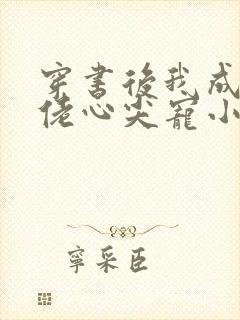 穿書後我成
佬心尖寵小
寧采臣